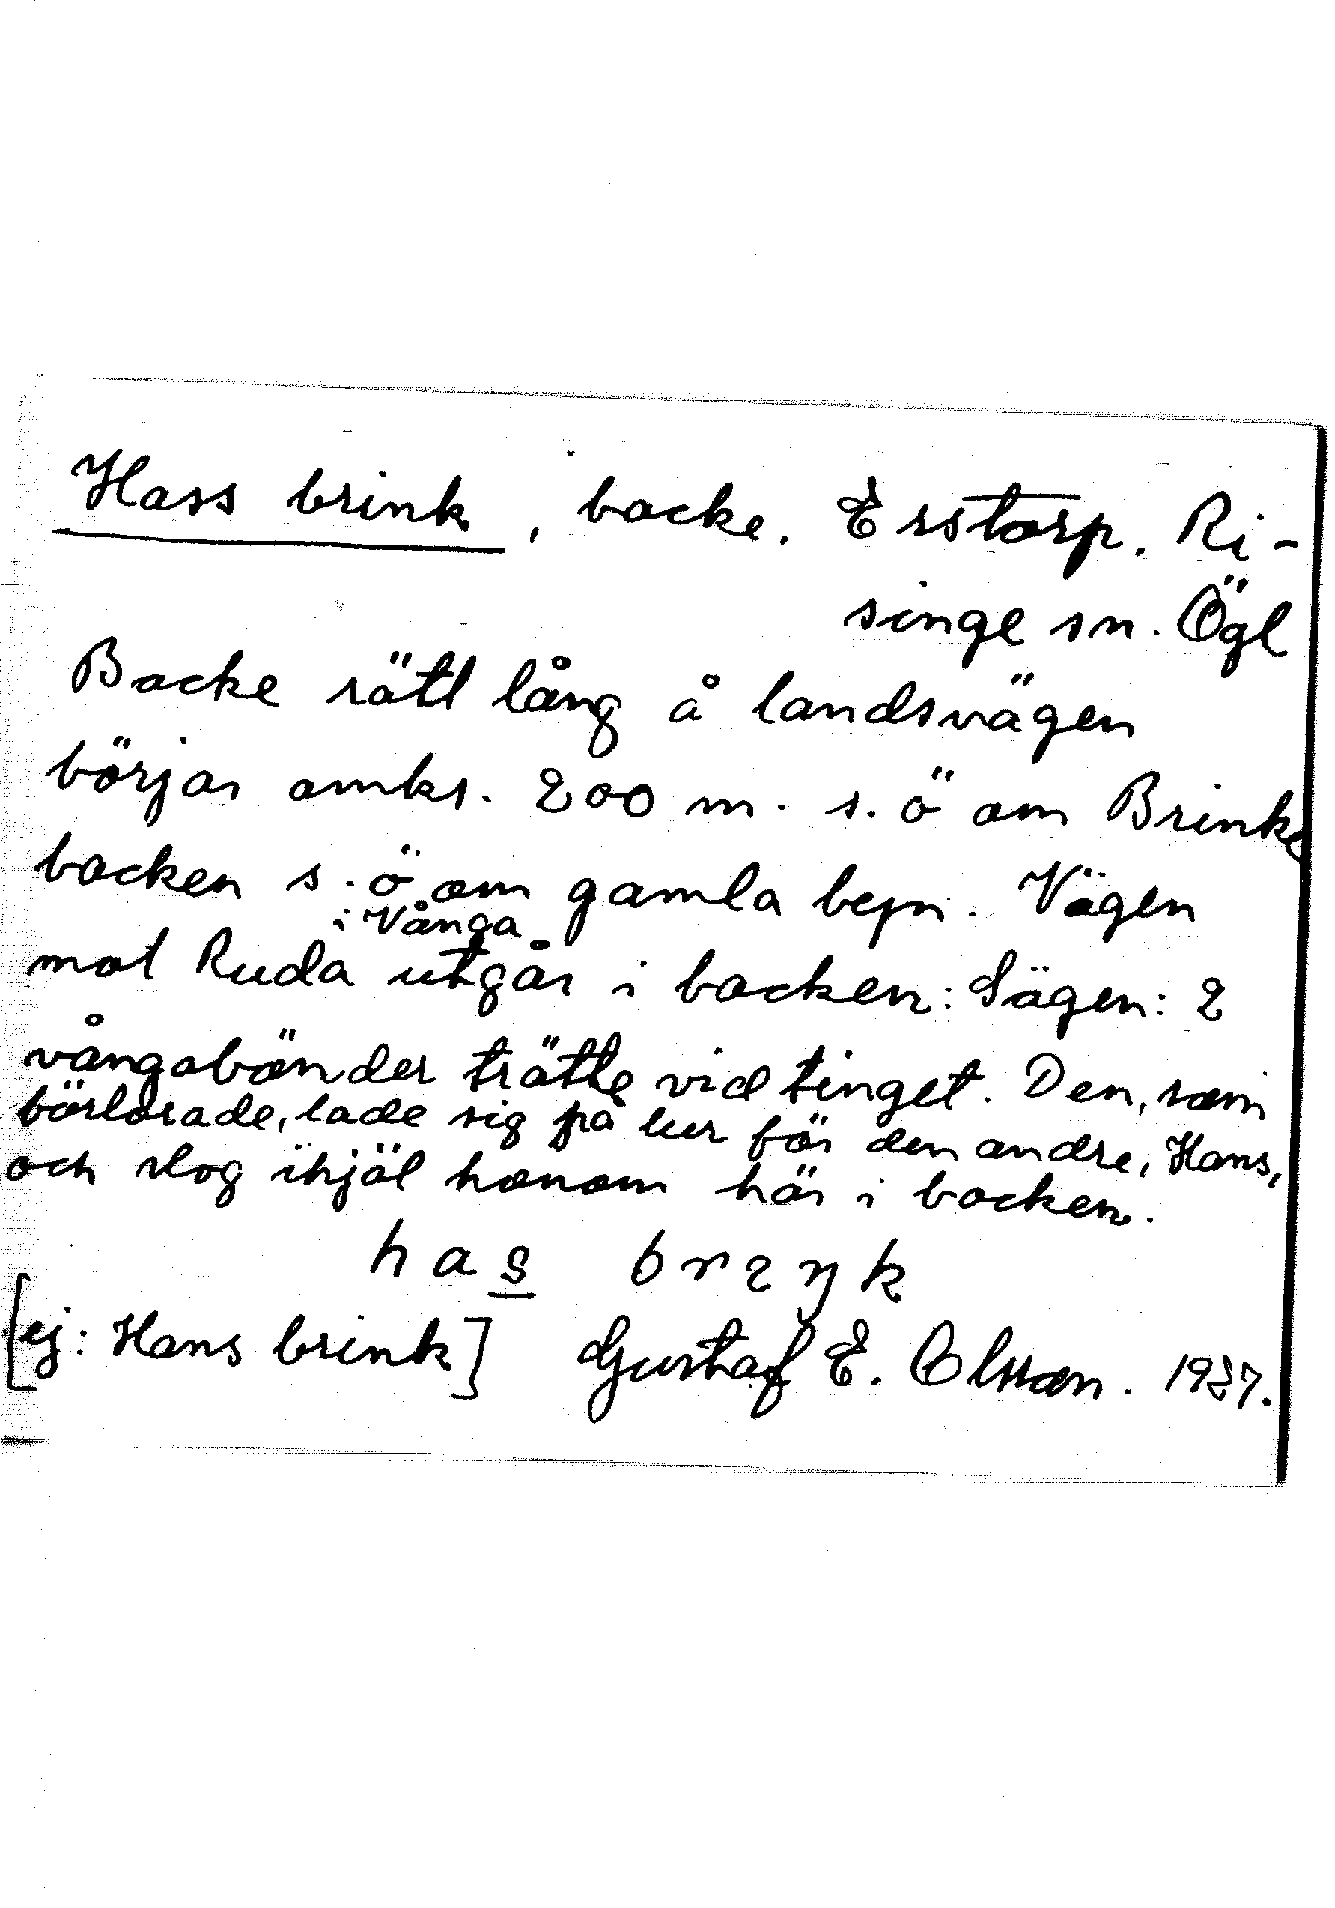 Hass brink, backe. Erstorp. Ri-
singe sn. Ögl
Backe rätt lång å landsvägen
börjar omkr. 200 m. s.ö om Brinke
backen s.ö om gamla bepn. Vägen
i Vånga
mot Ruda utgår i backen: Sägen: 2
vångabönder trätte vid tinget. Den, som
förlorade, lade sig på lur för den andre, Hans,
och slog ihjäl honom här i backen.
has brɪŋk
[ej: Hans brink] Gustaf E. Olsson. 1937.